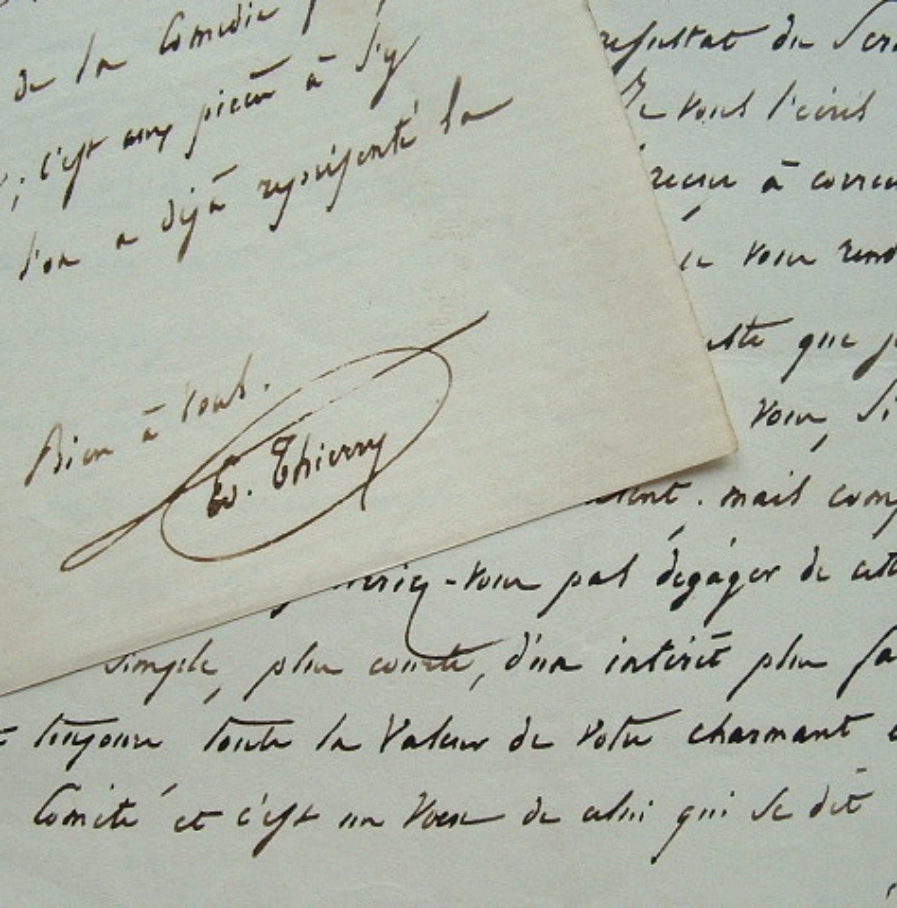 de la Comédie
c'est une pièce à s'y
l'on a déjà représenté la
Bien à vous.
Ed. Thierry
resultat du
Je vous l'écris
à
vous rend
que je
vous, si
mais comp
-vous pas dégager de cette
simple, plus courte, d'un intérêt plus fa
toujours toute la valeur de votre charmant
Comité et c'est un voeu de celui qui se dit